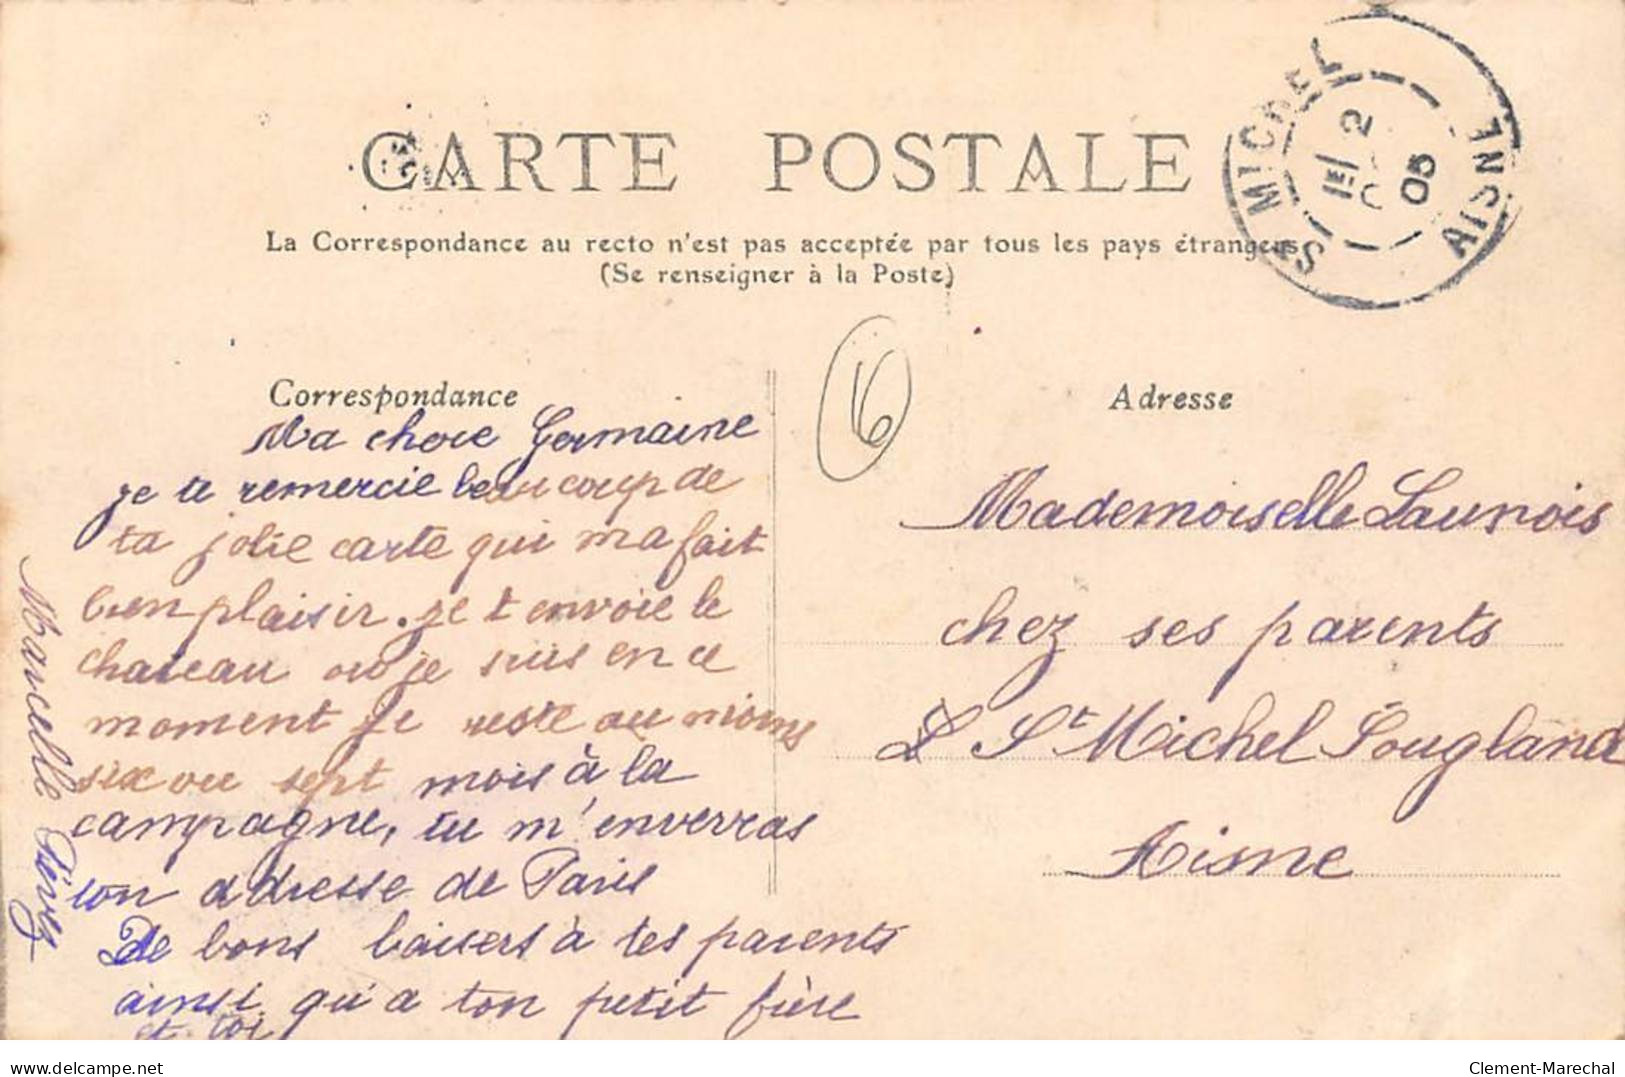 CARTE POSTALE
La Correspondance au recto n'est pas acceptée par tous les pays étrangers
(Se renseigner à la Poste)
ST MICHEL
AISNE
2
05
16
Correspondance
Ma chere Germaine
je te remercie beaucoup de
ta jolie carte qui ma fait
bien plaisir. je t envoie le
chateau ou je suis en ce
moment je reste au moins
six ou sept mois à la
campagne, tu m'enverras
ton adresse de Paris
De bons baisers à tes parents
ainsi qu'a ton petit frère
et toi
Marcelle
Adresse
Mademoiselle Launois
chez ses parents
St Michel Sougland
Aisne
delcampe.net
Clement-Marechal